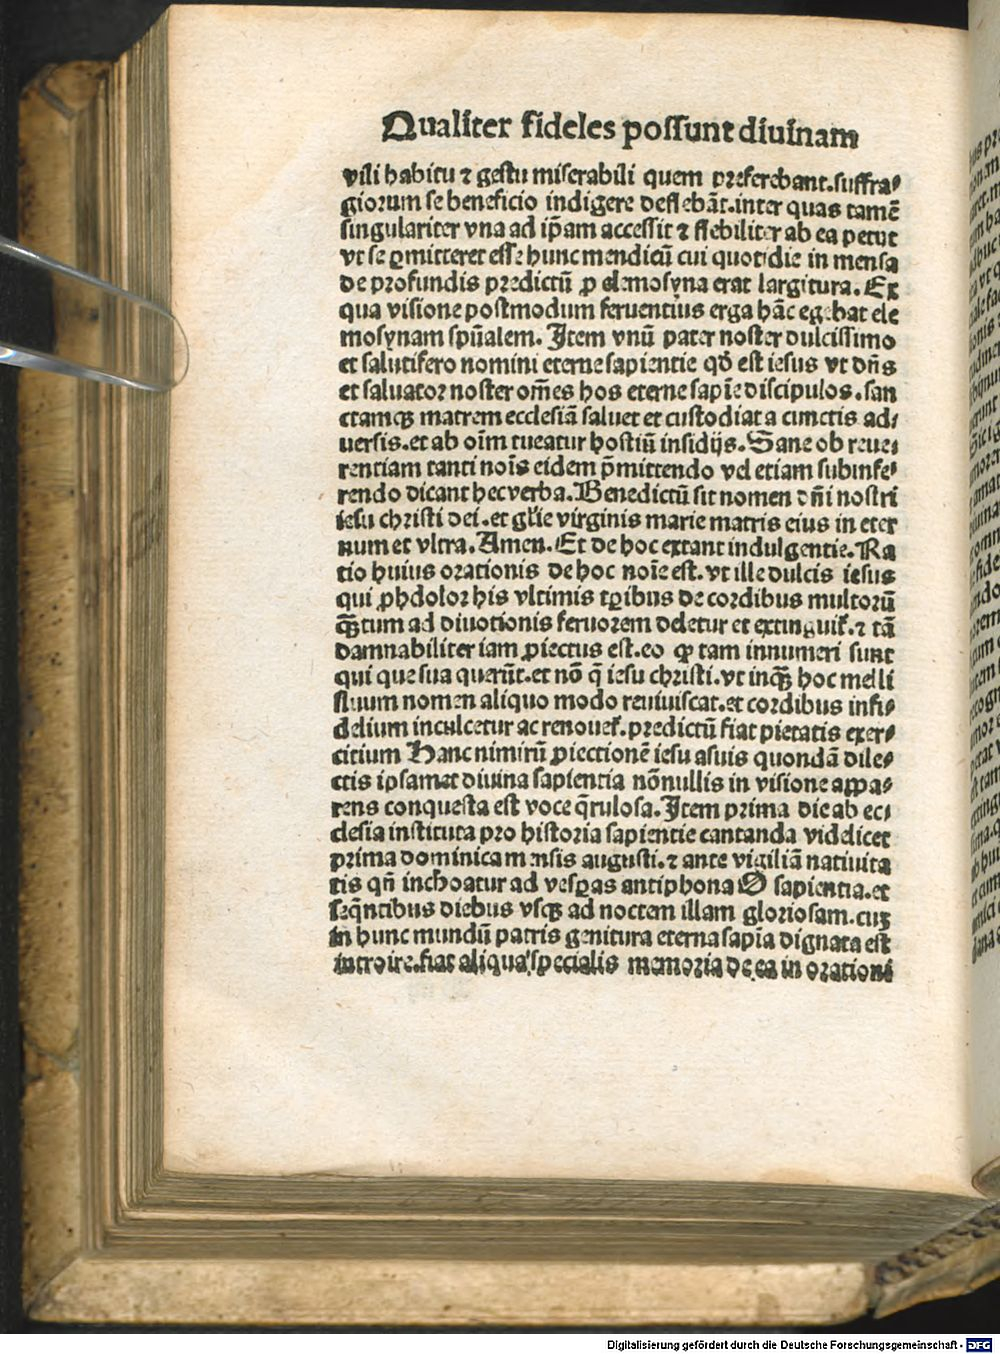 Qualiter fideles possunt diuinam
vili habitu ⁊ gestu miserabili quem preferebant.suffra⸗
giorum se beneficio indigere deflebãt.inter quas tamẽ
singulariter vna ad ip̃am accessit ⁊ flebiliter ab ea petut
vt se ꝑmitteret esse hunc mendicũ cui quotidie in mensa
de profundis predictũ ꝓ elemosyna erat largitura. Ex
qua visione postmodum feruentius erga hãc egebat ele
mosynam spũalem. Item vnũ pater noster dulcissimo
et salutifero nomini eterne sapientie qđ est iesus vt dñs
et saluator noster om̃es hos eterne sapiẽ discipulos.san
ctamqꝫ matrem ecclesiã saluet et custodiat a cunctis ad⸗
uersis.et ab oĩm tueatur hostiũ insidijs. Sane ob reue⸗
rentiam tanti noĩs eidem p̃mittendo vel etiam subinfe⸗
rendo dicant hec verba. Benedictũ sit nomen dñi nostri
iesu christi dei.et gl̃ie virginis marie matris eius in eter
num et vltra. Amen. Et de hoc extant indulgentie. Ra
tio huius orationis de hoc noĩe est. vt ille dulcis iesus
qui ꝓhdolor his vltimis tꝑibus de cordibus multorũ
qꝫ̃tum ad diuotionis feruorem deletur et extinguiť.⁊ tã
damnabiliter iam ꝓiectus est.eo ꝙ tam innumeri sunt
qui que sua querũt.et nõ q̃ iesu christi.vt inqꝫ̃ hoc melli
fluum nomen aliquo modo reuiuiscat.et cordibus infi⸗
delium inculcetur ac renoueť.predictũ fiat pietatis exer⸗
citium Hanc nimirũ ꝓiectionẽ iesu a suis quondã dile⸗
ctis ipsamet diuina sapientia nõnullis in visione appa⸗
rens conquesta est voce q̃rulosa. Item prima die ab ec⸗
clesia instituta pro historia sapientie cantanda videlicet
prima dominica mensis augusti.⁊ ante vigiliã natiuita
tis qñ inchoatur ad vesꝑas antiphona O sapientia.et
seq̃ntibus diebus vsqꝫ ad noctem illam gloriosam.cuꝫ
in hunc mundũ patris genitura eterna sapĩa dignata est
introire.fiat aliqua specialis memoria de ea in orationi
Digitalisierung gefördert durch die Deutsche Forschungsgemeinschaft - DFG